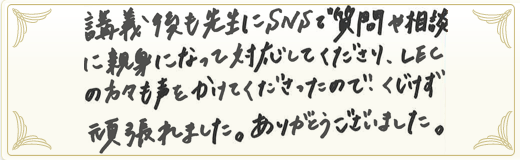 講義後も先生にSNSで質問や相談
に親身になって対応してくださり、LEC
の方々も声をかけてくださったので、くじけず
頑張れました。ありがとうございました。